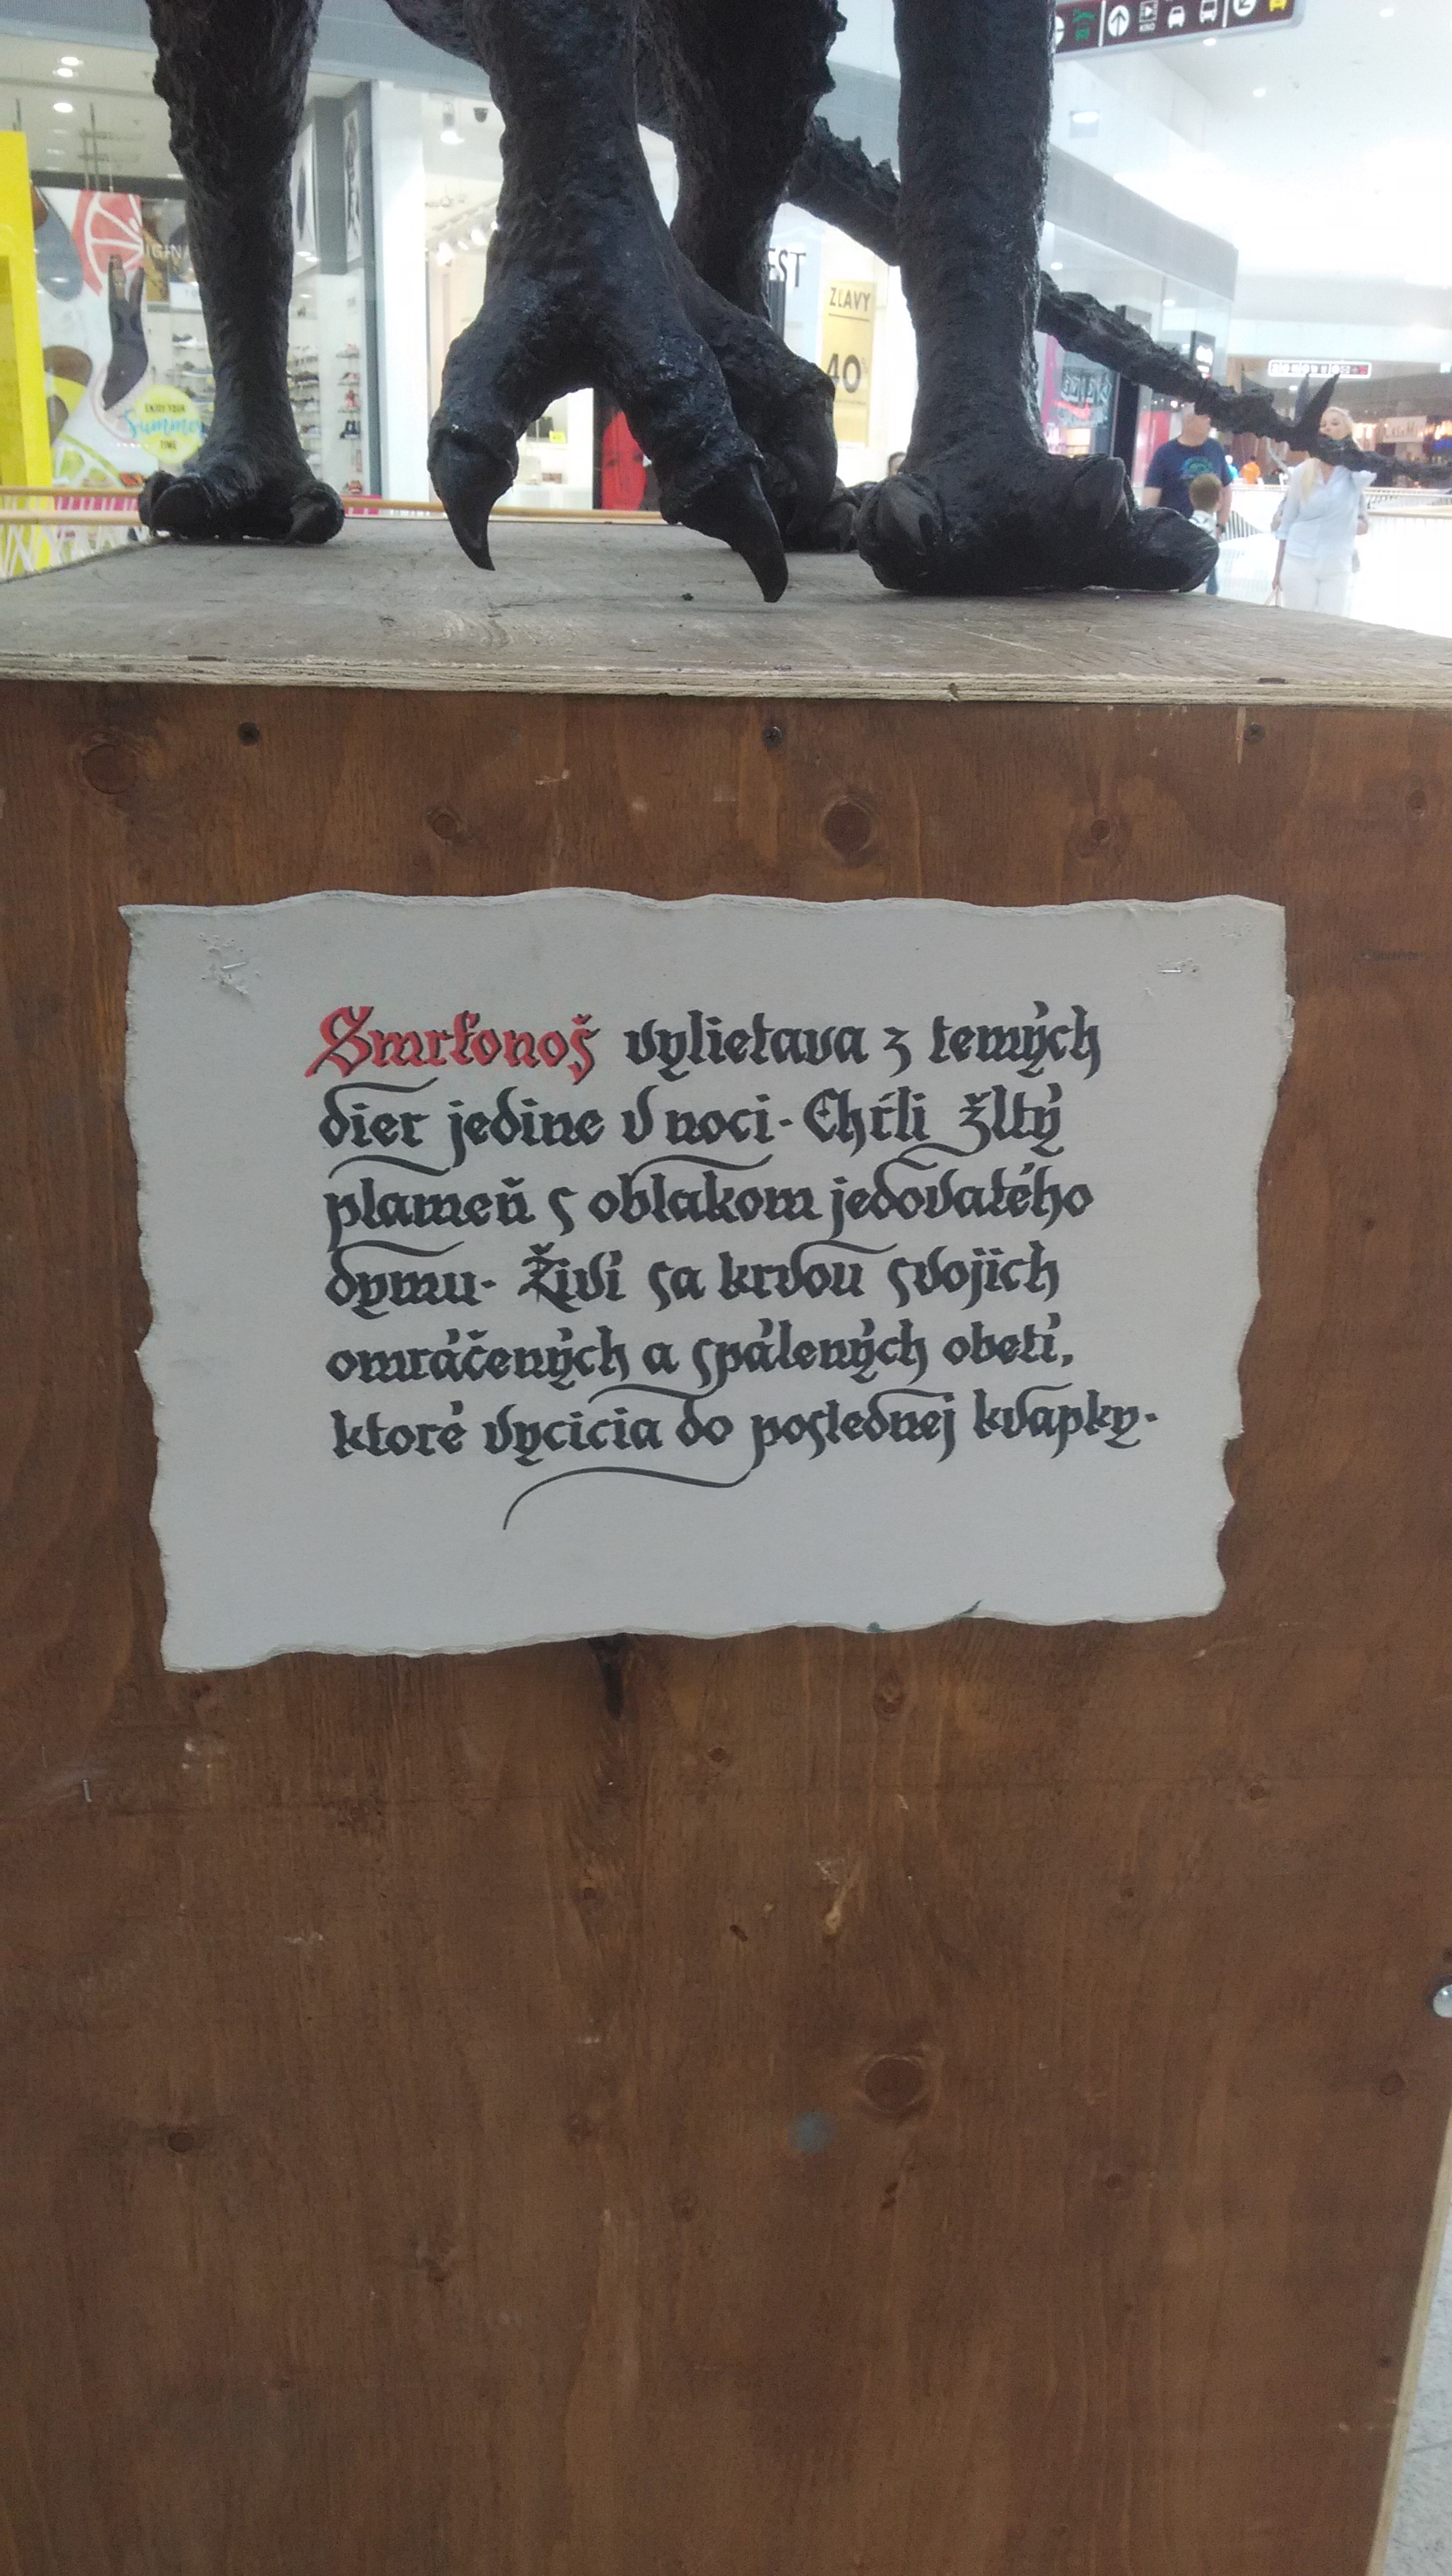 ZĽAVY
40
ENJOY YOUR
Summer
TIME
Smrťonoš vylietava z temných
dier jedine v noci. Chŕli žltý
plameň s oblakom jedovatého
dymu. Živí sa krvou svojich
omráčených a spálených obetí,
ktoré vycicia do poslednej kvapky.